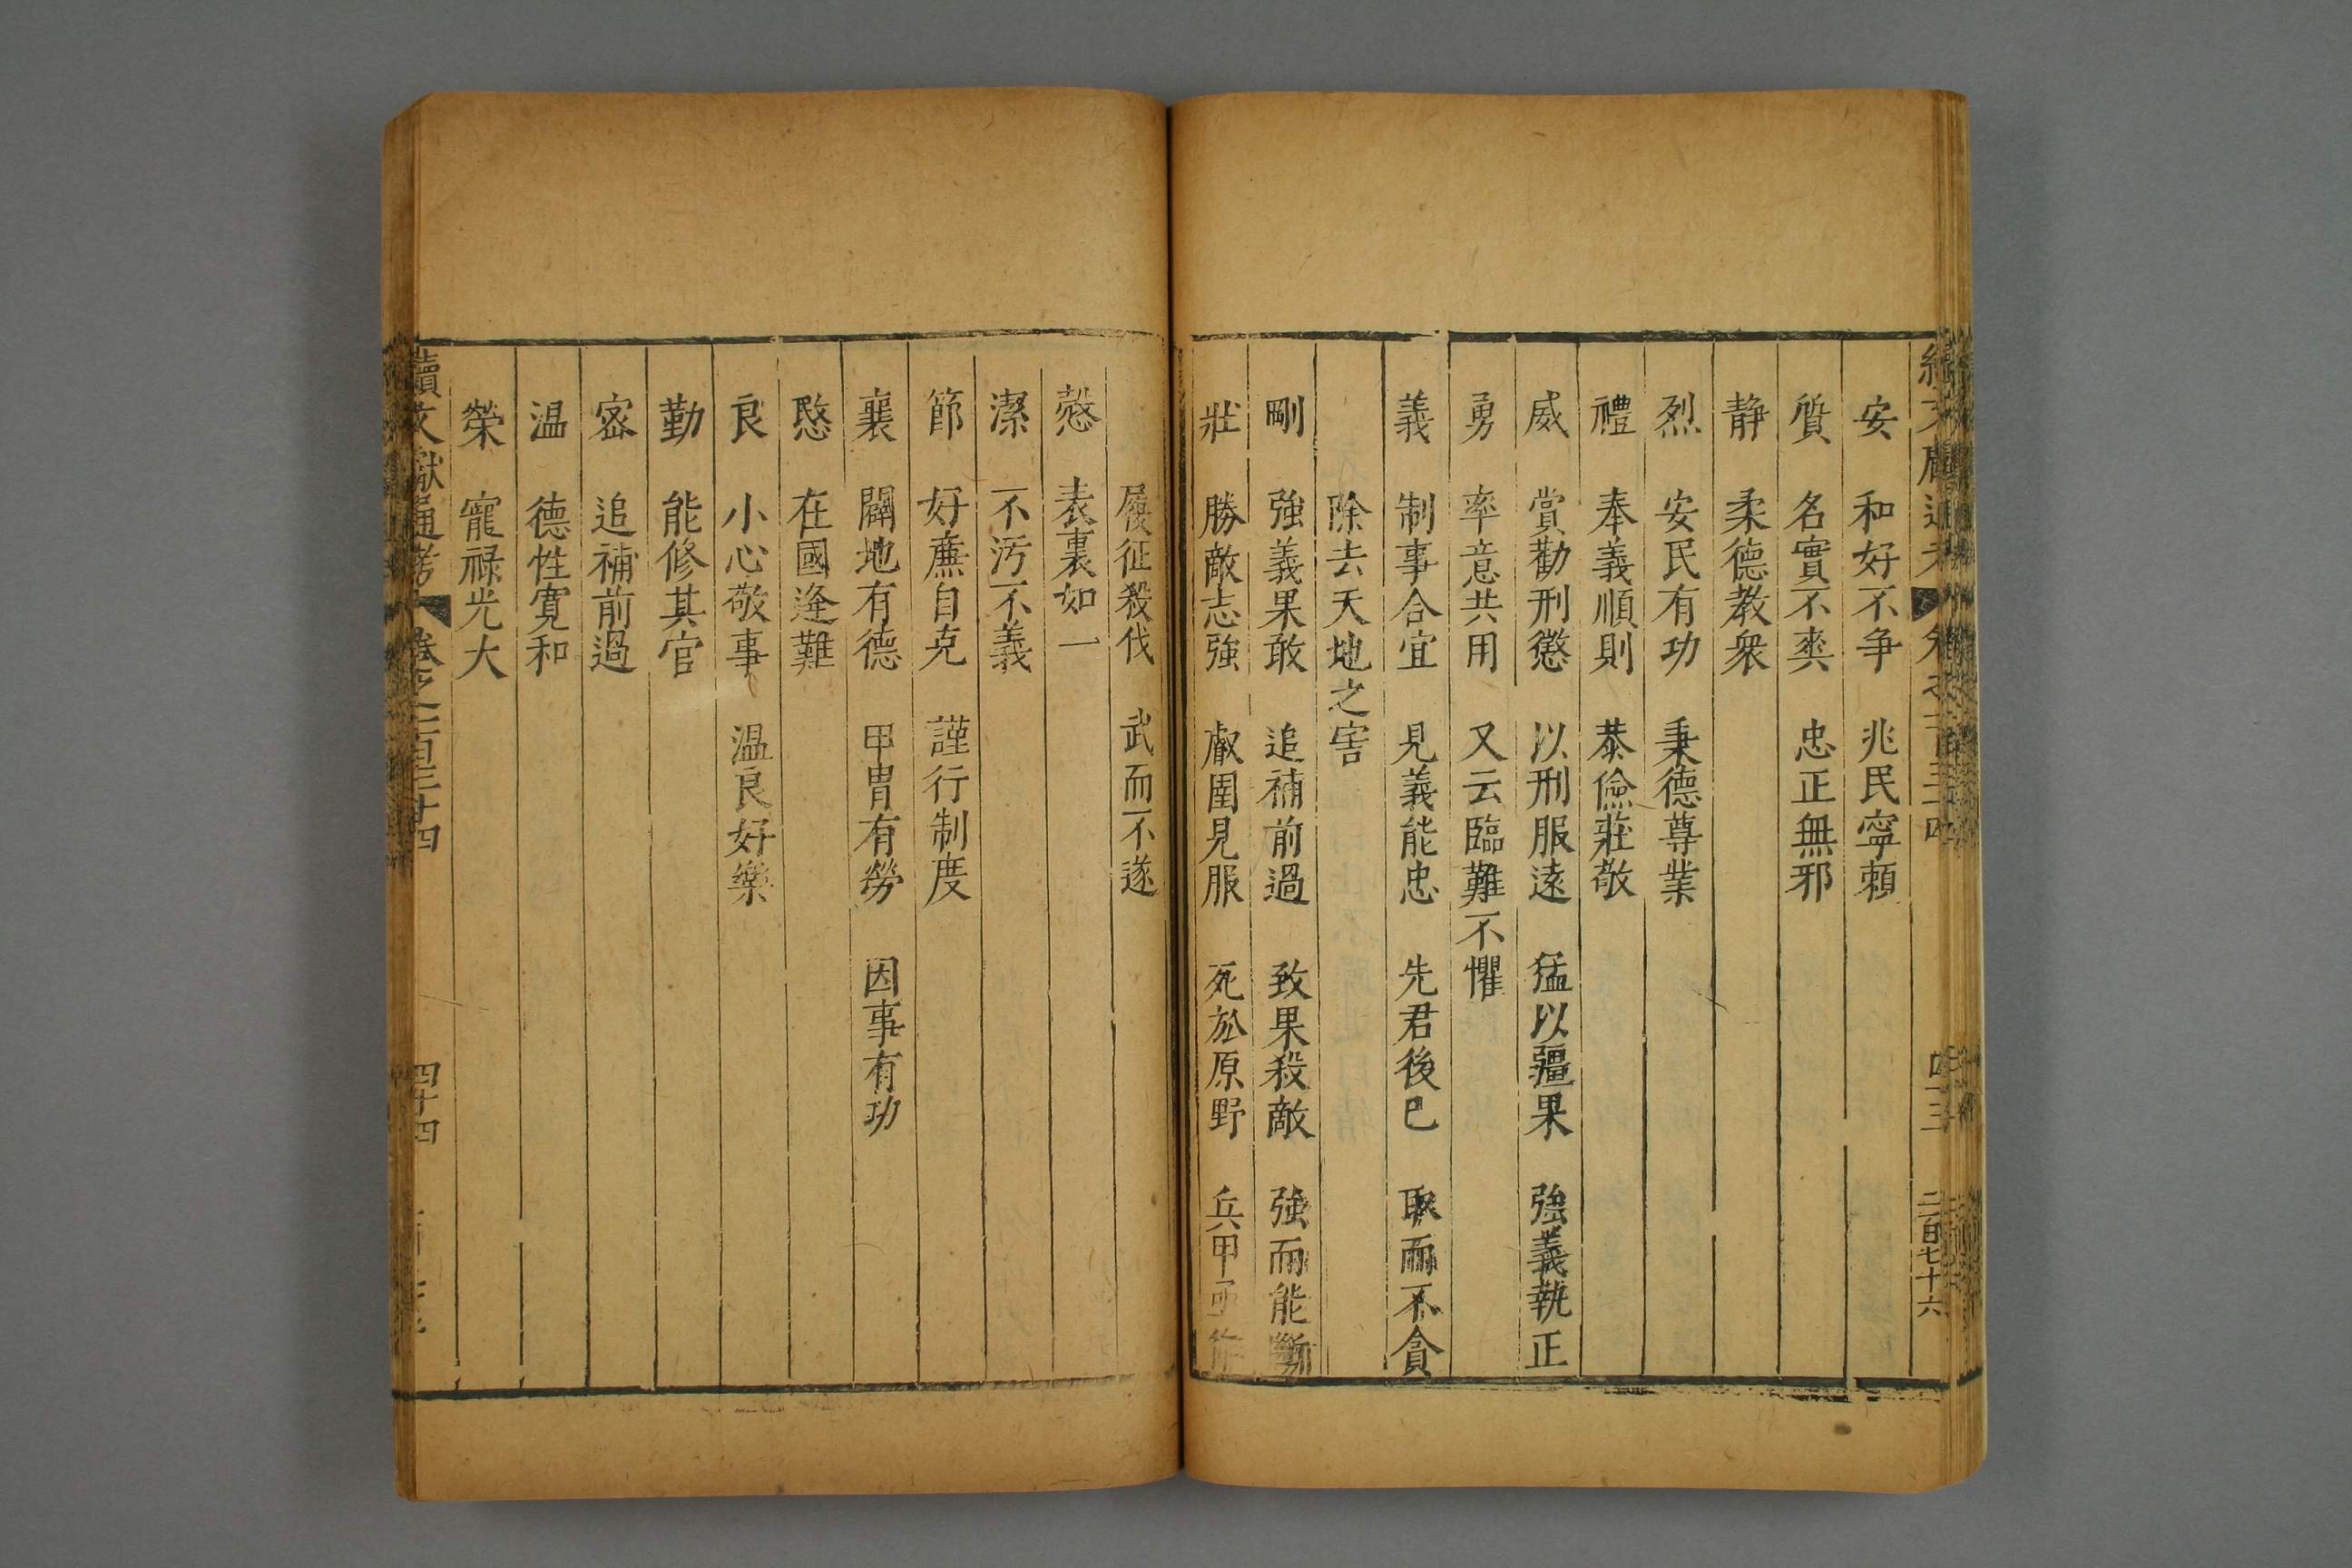 安　和好不争　兆民寧賴
質　名實不爽　忠正無邪
静　柔德教衆
烈　安民有功　秉德尊業
禮　奉義順則　恭儉莊敬
威　賞勸刑懲　以刑服遠　猛以彊果　強義執正
勇　率意共用　又云臨難不懼
義　制事合宜　見義能忠　先君後己　取而不貪
除去天地之害
剛　強義果敢　追補前過　致果殺敵　強而能斷
壯　勝敵志強　叡圉見服　死於原野　兵甲亟作
履征殺伐　武而不遂
愨　表裏如一
潔　不汚不義
節　好廉自克　謹行制度
襄　闢地有德　甲冑有勞　因事有功
愍　在國逄難
良　小心敬事　温良好樂
勤　能修其官
密　追補前過
温　德性寛和
榮　寵祿光大
續文獻通考　卷之一百三十四　四十四
四十三　二百七十六